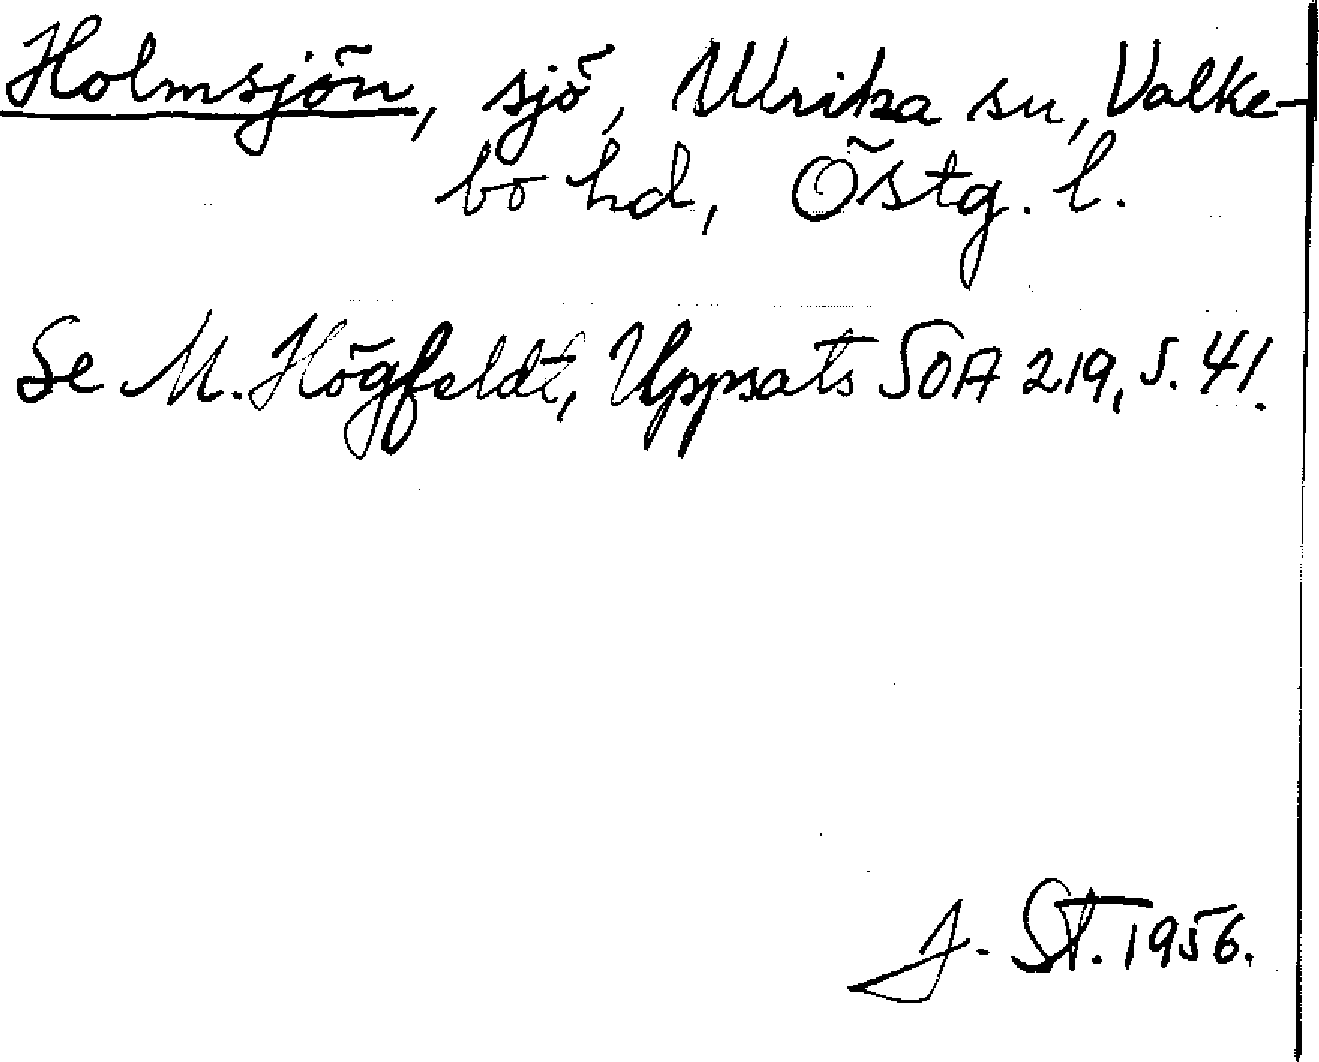 Holmsjön, sjö, Ulrika sn, Valke-
bo hd, Östg. l.
Se M. Högfeldt, Uppsats SOA 219, s. 41.
J. St. 1956.